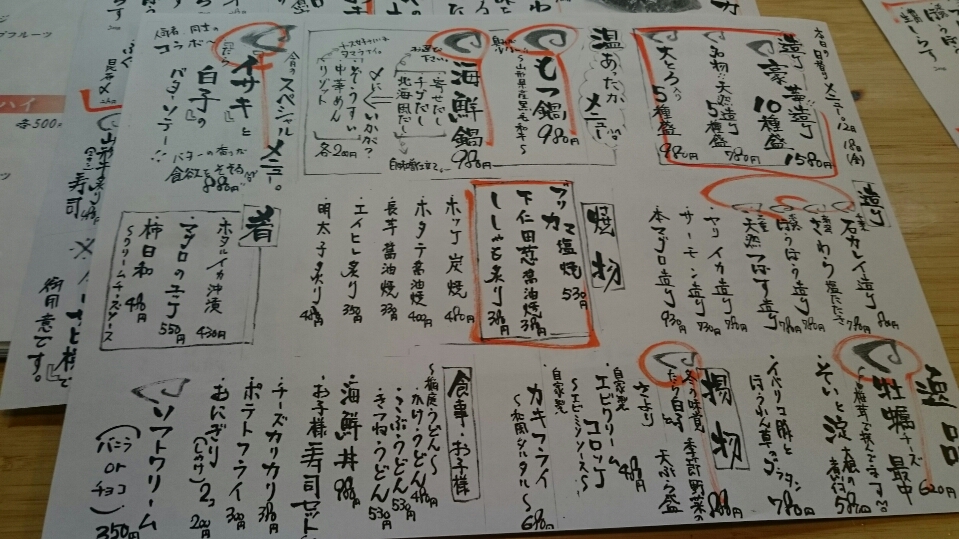 本日の日替りメニュー。12/18(金)
造り
豪華造り
10種盛
1580円
名物!!天然造り
5種盛
780円
大とろ入り
5種盛
980円
温 あったか メニュー
もつ鍋 980円
〜山形県産黒毛和牛〜
海鮮鍋 980円
お選び下さい
・寄せだし
・チゲだし
・北海風だし
〆にいかが?
・ぞうすい
・中華めん
・リゾット
各200円
今日のスペシャルメニュー。
イサキと
白子の
バターソテー
バターの香りが
食欲をそそる
880円
造り
・石カレイ造り 880円
・さわら塩たたき 780円
・ほうぼう造り 780円
・天然つばす造り 780円
・ヤリイカ造り 780円
・サーモン造り 730円
・本マグロ造り 930円
焼物
ブリカマ塩焼 530円
下仁田葱醤油焼 380円
ししゃも炙り 380円
・ホッケ炭焼 480円
・ホタテ醤油焼 400円
・長芋醤油焼 330円
・エイヒレ炙り 350円
・明太子炙り 480円
肴
・ホタルイカ沖漬 430円
・マグロのユッケ 550円
・柿日和 480円
〜クリームチーズソース
逸品
牡蠣チーズ最中 620円
・ぞいと淀大根の煮付 580円
・イベリコ豚と
ほうれん草のグラタン 780円
揚物
冬の味覚 季節野菜の
たら白子
さより 天ぷら盛 880円
自家製
・エビクリームコロッケ 480円
〜エビミソソース〜
自家製
カキフライ
〜和風タルタル〜 680円
食事・お子様
〜稲庭うどん〜
・かけうどん 480円
・こぶうどん 530円
・きつねうどん 530円
・海鮮丼 980円
・お子様寿司セット
・チーズカリカリ 380円
・ポテトフライ 300円
・おにぎり 2コ 200円
・ソフトクリーム
(バニラ or チョコ) 350円
寿司
御用意です。
各500円